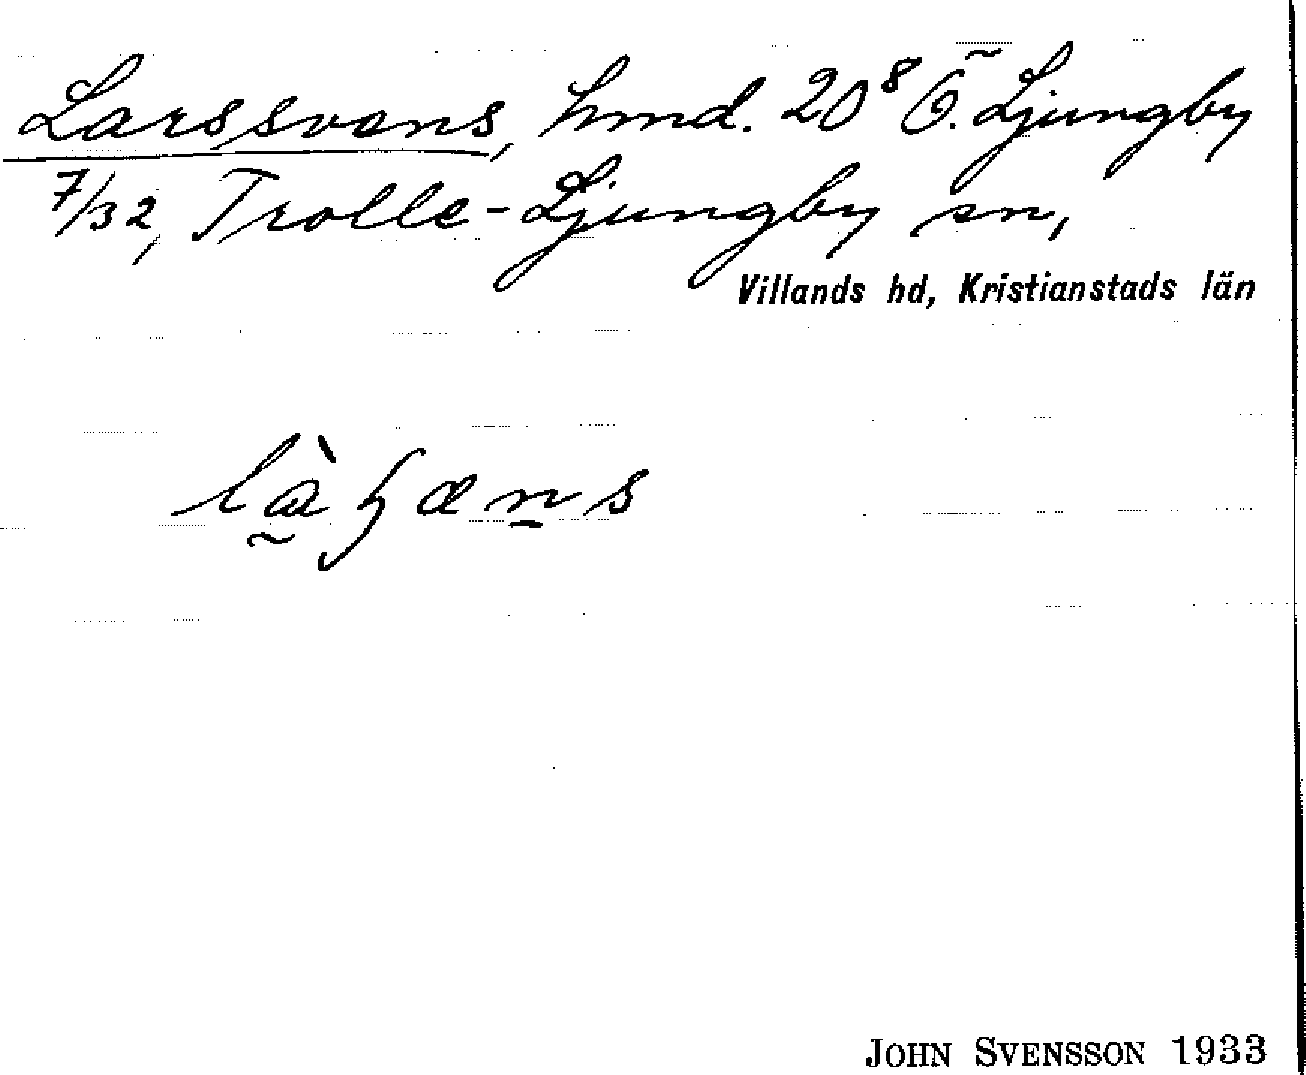 Larssvens, hmd. 20⁸ Ö. Ljungby
7/32, Trolle-Ljungby sn,
Villands hd, Kristianstads län
JOHN SVENSSON 1933